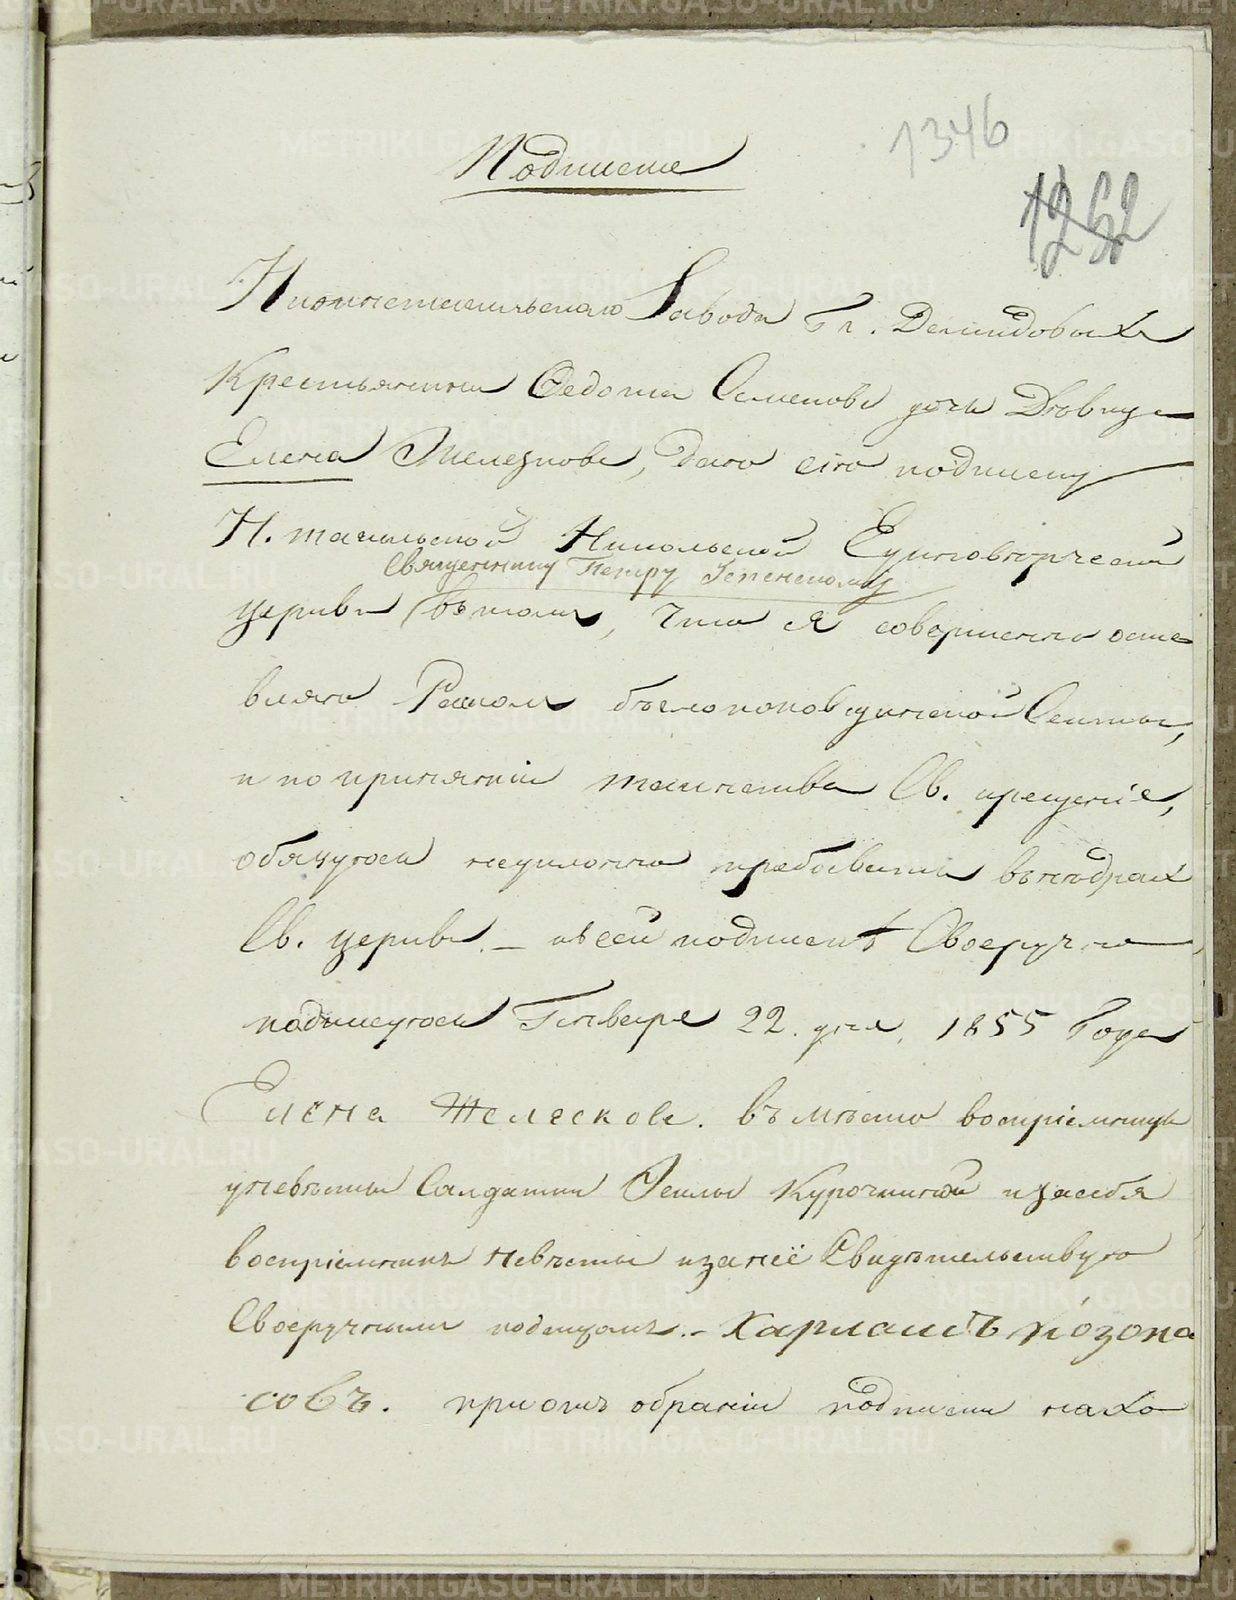 1346
1262
Подписка
Нижнетагильскаго Завода Гг. Демидовыхъ
Крестьянина Федота Семенова дочь Девица
Елена Железкова, даю сію подписку
Н. тагильской Никольской Единоверческой
Священнику Петру
церкви въ томъ, что я совершенно оста
вляю Расколъ бѣглопоповщинской Секты,
и по принятіи таинства Св. крещенія,
обязуюсь неуклонно пребывать въ нѣдрахъ
Св. церкви. – къ сей подпискѣ Своеручно
подписуюсь Генваря 22. дня. 1855 Года
Елена Желескова. въ мѣсто воспріемницы
уневѣсты Салдатки Феклы Курочкиной и засебя
воспріемникъ невѣсты и занеё Свидѣтельствую
Своеручнымъ подписомъ. – Харлампъ Козопа
совъ. при отобраніи подписки нахо